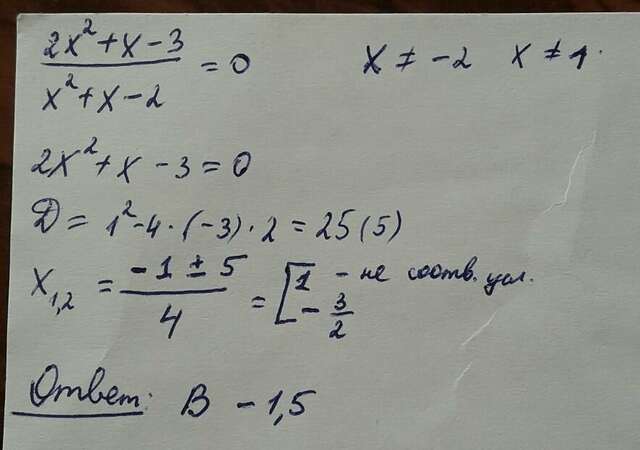 (2x²+x-3)/(x²+x-2) = 0 x ≠ -2 x ≠ 1.
2x²+x-3=0
D = 1²-4·(-3)·2 = 25(5)
x₁,₂ = (-1 ± 5)/4 = [1 - не соотв. усл.
- 3/2
Ответ: B -1,5